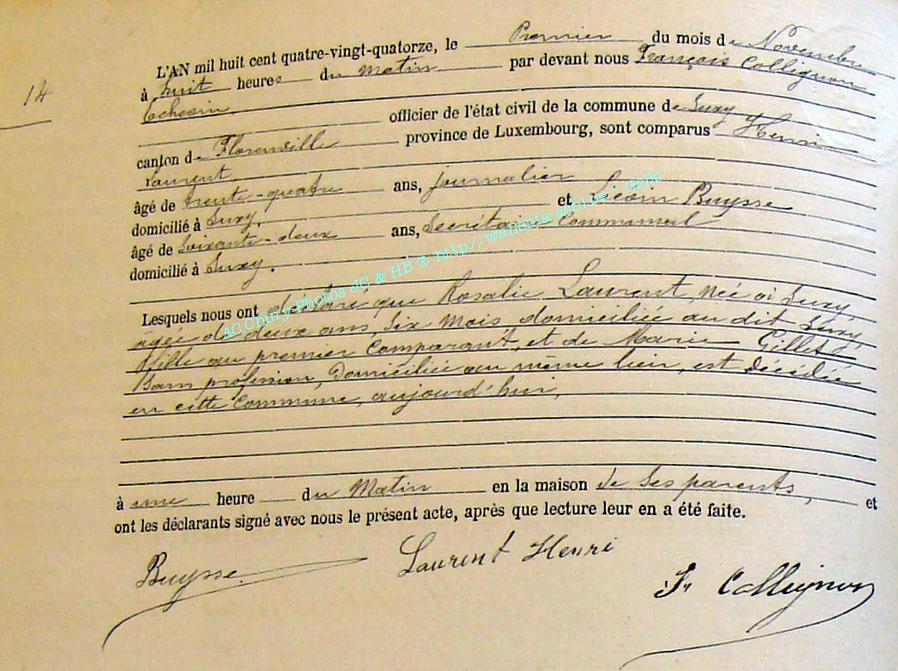 14
L'AN mil huit cent quatre-vingt-quatorze, le Premier du mois de Novembre
à huit heures du Matin par devant nous François Collignon
Echevin officier de l'état civil de la commune de Suxy
canton de Florenville province de Luxembourg, sont comparus Henri
Laurent
âgé de trente-quatre ans, journalier
domicilié à Suxy, et Licoin Buysse
âgé de Soixante-deux ans, Secrétaire Communal
domicilié à Suxy.
Lesquels nous ont déclaré que Rosalie Laurent, née à Suxy,
agée de deux ans, six mois domiciliée au dit Suxy,
fille du premier Comparant, et de Marie Gillet,
Sans profession, Domiciliée au même lieu, est décédée
en cette Commune, aujourd'hui,
à une heure du Matin en la maison de ses parents, et
ont les déclarants signé avec nous le présent acte, après que lecture leur en a été faite.
Buysse Laurent Henri
Fs Collignon
AC Chiny Photos JC & HB ® http//wallonia-asbl.be .com